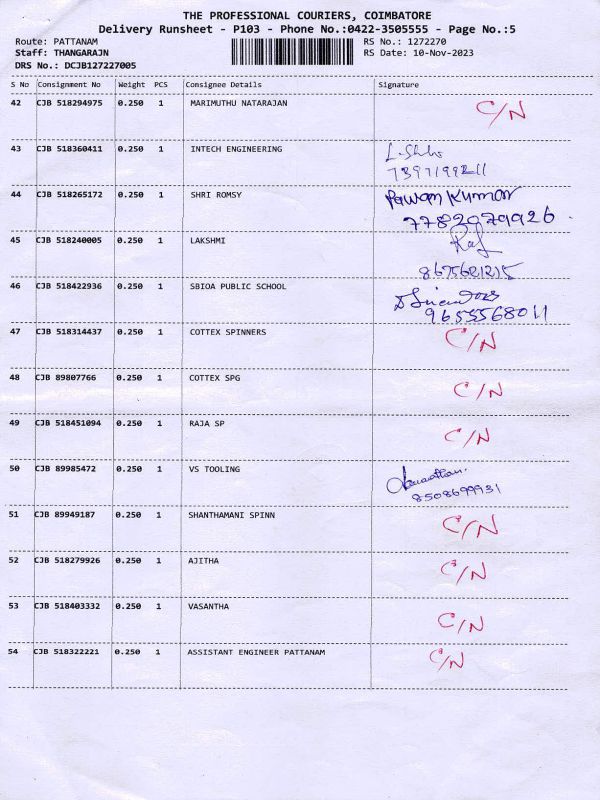 THE PROFESSIONAL COURIERS, COIMBATORE
Delivery Runsheet - P103 - Phone No.:0422-3505555 - Page No.:5
Route: PATTANAM RS No.: 1272270
Staff: THANGARAJN RS Date: 10-Nov-2023
DRS No.: DCJB127227005
S No Consignment No Weight PCS Consignee Details Signature
42 CJB 518294975 0.250 1 MARIMUTHU NATARAJAN C/N
43 CJB 518360411 0.250 1 INTECH ENGINEERING
7397199211
44 CJB 518265172 0.250 1 SHRI ROMSY Pawan Kumar
7782079926
45 CJB 518240005 0.250 1 LAKSHMI Raj
8675621215
46 CJB 518422936 0.250 1 SBIOA PUBLIC SCHOOL
9655568011
47 CJB 518314437 0.250 1 COTTEX SPINNERS C/N
48 CJB 89807766 0.250 1 COTTEX SPG C/N
49 CJB 518451094 0.250 1 RAJA SP C/N
50 CJB 89985472 0.250 1 VS TOOLING
8508699931
51 CJB 89949187 0.250 1 SHANTHAMANI SPINN C/N
52 CJB 518279926 0.250 1 AJITHA C/N
53 CJB 518403332 0.250 1 VASANTHA C/N
54 CJB 518322221 0.250 1 ASSISTANT ENGINEER PATTANAM C/N